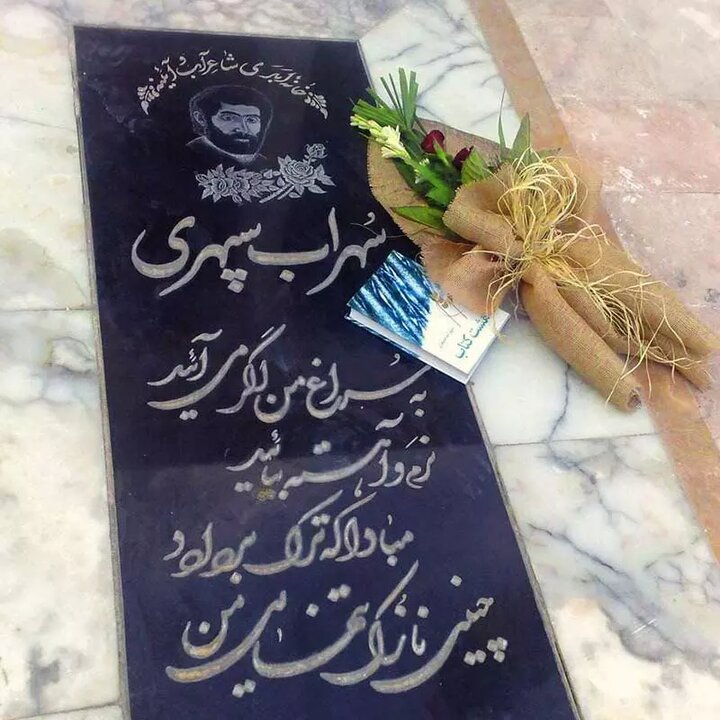 خانه ابدی شاعر آب و آینه
سُهراب سپهری
به سُراغ من اگر می آئید
نرم و آهسته بیائید
مبادا که ترک بردارد
چینی نازک تنهایی من
هشت کتاب